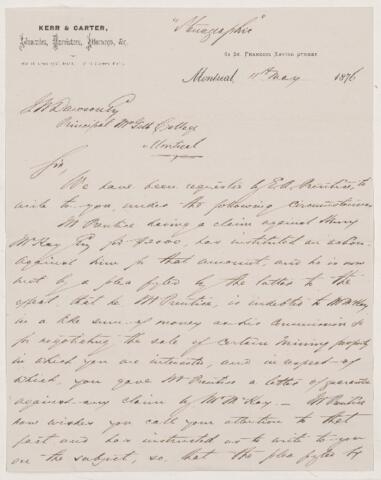 KERR & CARTER,
Advocates, Barristers, Attorneys, &c.
"Stenographic"
St. FRANCOIS XAVIER STREET
Montreal, 11th May 1876
J W Dawson Esq
Principal McGill College
Montreal
Sir,
We have been requested by E.A. Prentice, to
write to you, under the following circumstances
Mr Prentice having a claim against Henry
McKay Esq for $2000, has instituted an action
against him for that amount, and he is now
met by a plea fyled by the latter to the
effect, that he Mr Prentice, is indebted to Mr McKay
in a like sum of money as his Commission
for negotiating the sale of certain mining property
in which you are interested, and in respect of
which, you gave Mr Prentice a letter of guarantee
against any claim by Mr McKay. — Mr Prentice
now wishes you call your attention to that
fact and has instructed us to write to you
on the subject, so, that the plea fyled by